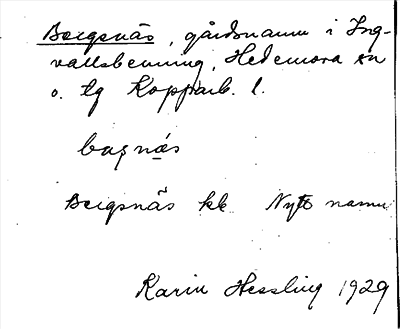 Bergsnäs, gårdsnamn i Ing-
vallsbenning, Hedemora sn
o. tg Kopparb. l.
Bergsnäs kb Nytt namn
Karin Hessling 1929